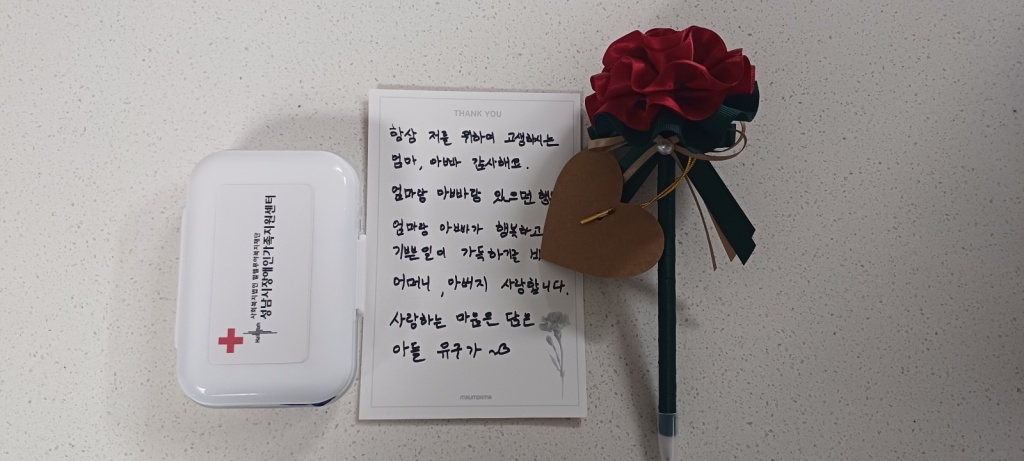 성남시장애인가족지원센터
THANK YOU
항상 저를 위하여 고생하시는
엄마, 아빠 감사해요.
엄마랑 아빠랑 있으면
엄마랑 아빠가 행복하고
기쁜일이 가득하기를
어머니, 아버지 사랑합니다.
사랑하는 마음은 담은
아들 유구가